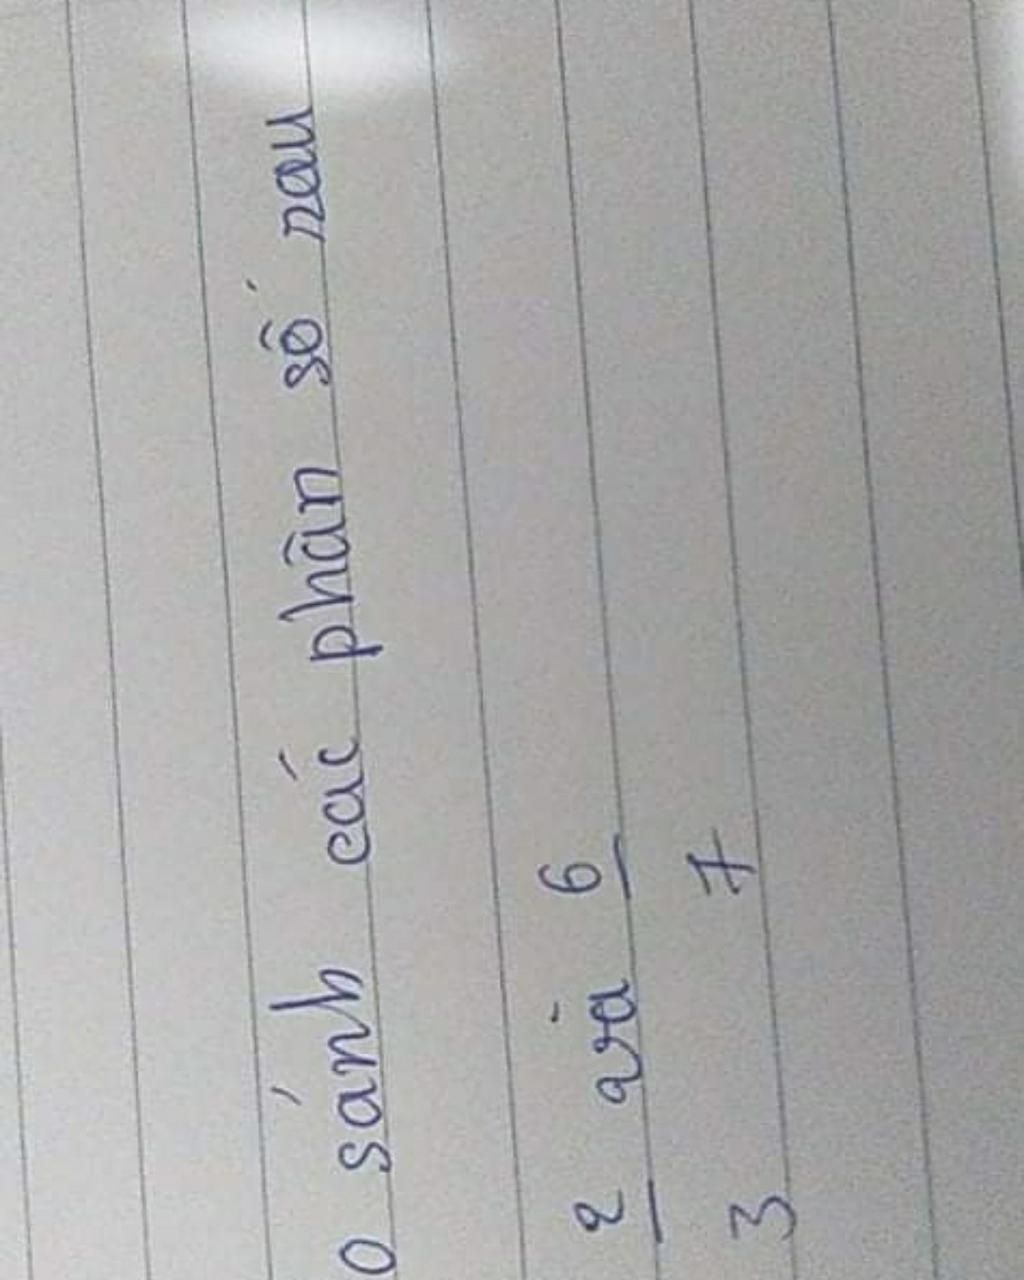 o sánh các phân số rau
2 và 6
3 7